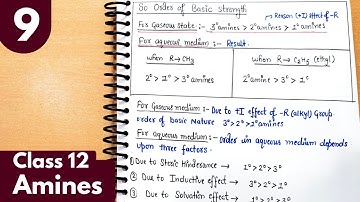 9
Class 12
Amines
So Order of Basic strength
Reason (+I) Effect of -R
For Gaseous state:- 3° amines > 2° amines > 1° amines
For aqueous medium:- Result.
when R → CH3
2° > 1° > 3° amines
when R → C2H5 (Ethyl)
2° amine > 3° > 1°
For Gaseous medium:- Due to +I effect of -R (alkyl) Group
order of basic Nature 3° > 2° > 1° amines
For aqueous medium:- Order in aqueous medium depends
upon three factors.
① Due to Steric Hinderance → 1° > 2° > 3°
② Due to Inductive effect → 3° > 2° > 1°
③ Due to Solvation effect → 1° > 2° > 3°